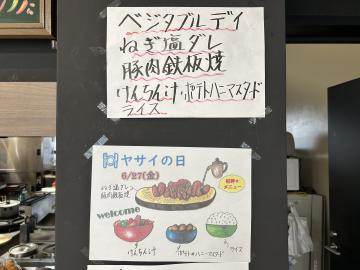 ベジタブルデイ
ねぎ塩ダレ
豚肉鉄板焼
けんちん汁・ポテトハニーマスタード
ライス
ヤサイの日
6/27(金)
ねぎ塩ダレ
豚肉鉄板焼
welcome
メニュー
けんちん汁
ポテトハニーマスタード
ライス